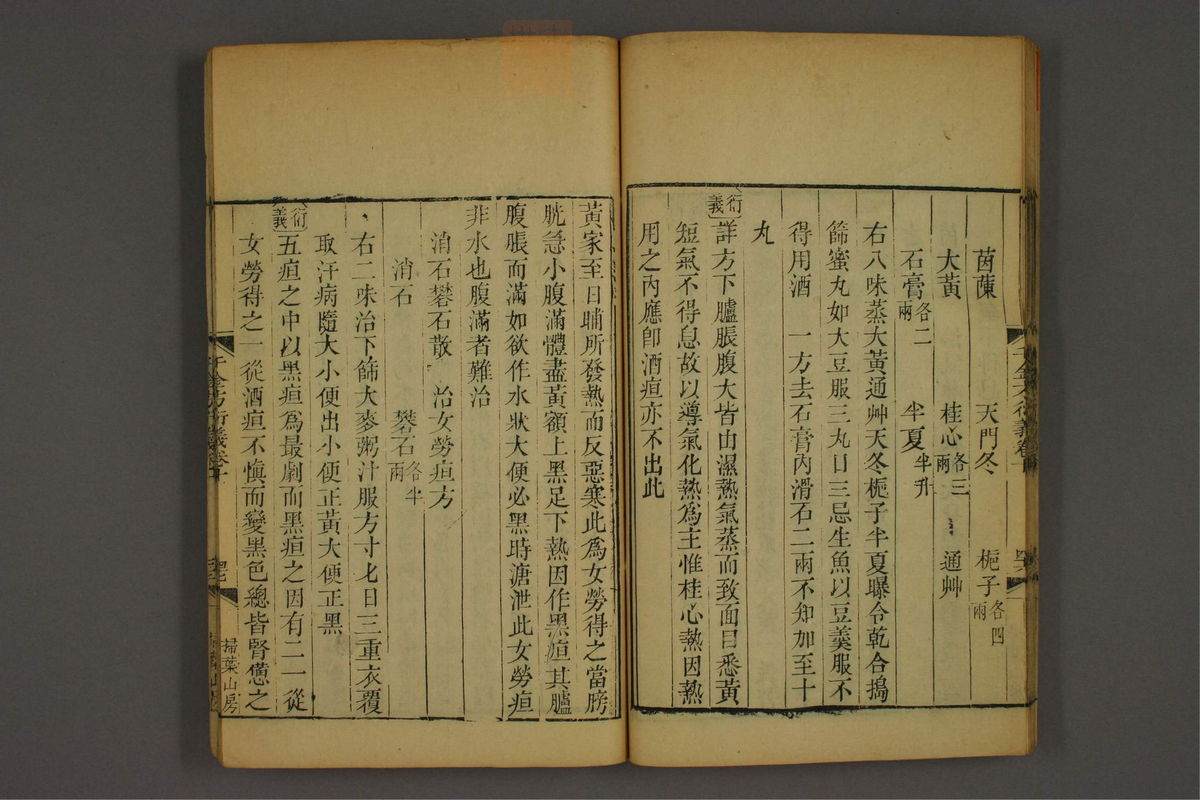 茵蔯 天門冬 梔子各四兩
大黃 桂心各三兩 通艸
石膏各二兩 半夏半升
右八味蒸大黃通艸天冬梔子半夏曝令乾合搗
篩蜜丸如大豆服三丸日三忌生魚以豆羹服不
得用酒 一方去石膏內滑石二兩不知加至十
丸
衍義 詳方下臚脹腹大皆由濕熱氣蒸而致面目悉黃
短氣不得息故以導氣化熱為主惟桂心熱因熱
用之內應卽酒疸亦不出此
黃家至日晡所發熱而反惡寒此為女勞得之當膀
胱急小腹滿體盡黃額上黑足下熱因作黑疸其臚
腹脹而滿如欲作水狀大便必黑時溏泄此女勞疸
非水也腹滿者難治
消石礬石散 治女勞疸方
消石 礬石各半兩
右二味治下篩大麥粥汁服方寸匕日三重衣覆
取汗病隨大小便出小便正黃大便正黑
衍義 五疸之中以黑疸為最劇而黑疸之因有二一從
女勞得之一從酒疸不慎而變黑色總皆腎憊之
千金方衍義卷十
掃葉山房